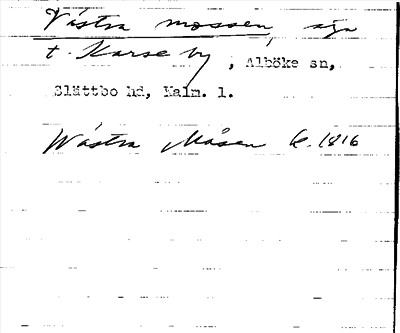 Västra mossen, äga
t. Karse by, Alböke sn,
Slättbo hd, Kalm. l.
Wästra Måsen k. 1816